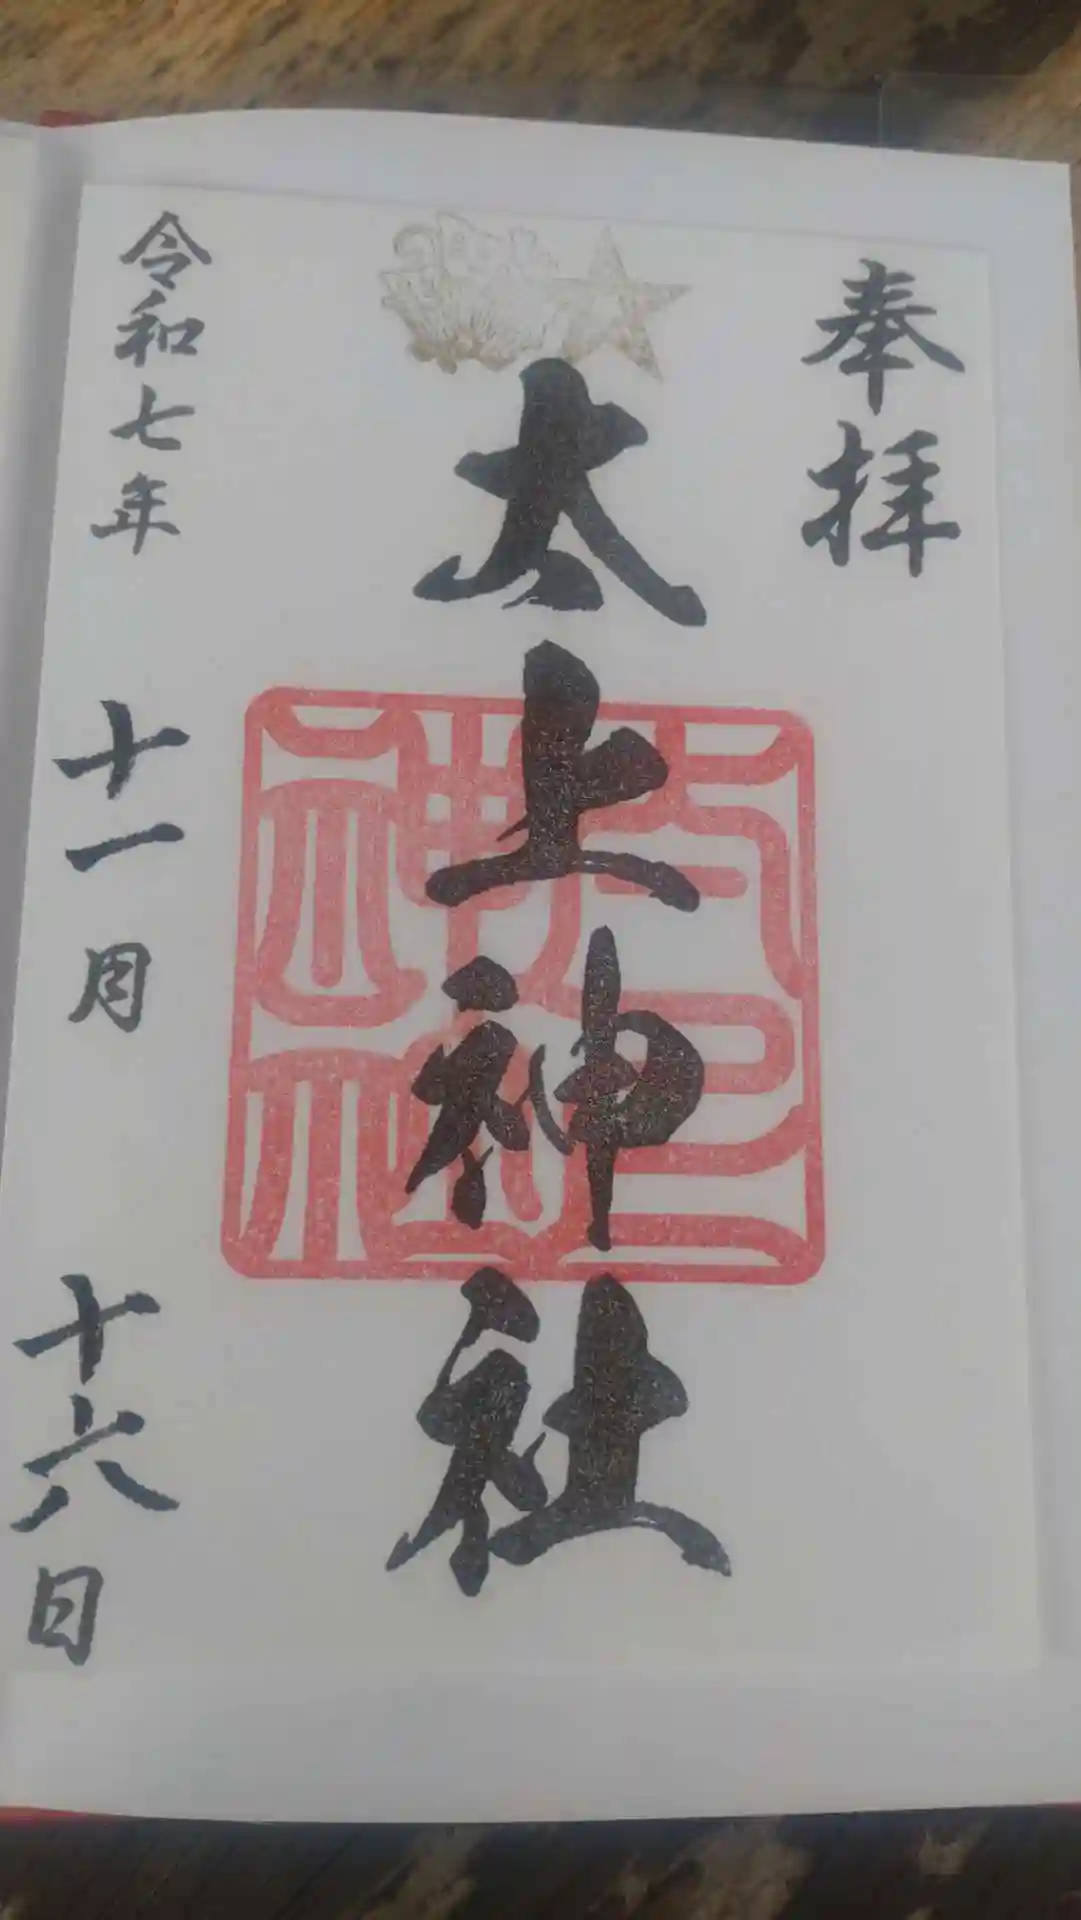 奉拝
太上神社
令和七年十一月十六日